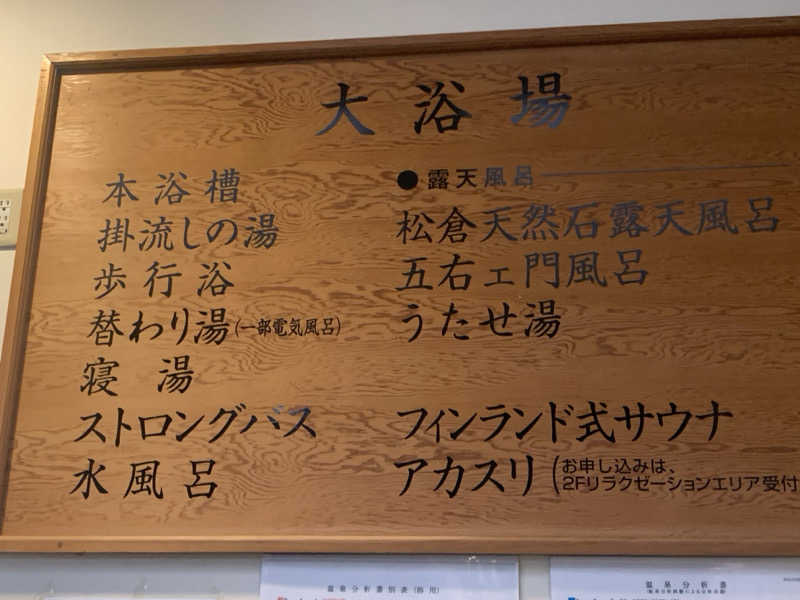 大浴場
本浴槽
掛流しの湯
歩行浴
替わり湯(一部電気風呂)
寝 湯
ストロングバス
水風呂
●露天風呂
松倉天然石露天風呂
五右ェ門風呂
うたせ湯
フィンランド式サウナ
アカスリ(お申し込みは、
2Fリラクゼーションエリア受付
温泉分析書別表
温泉分析書